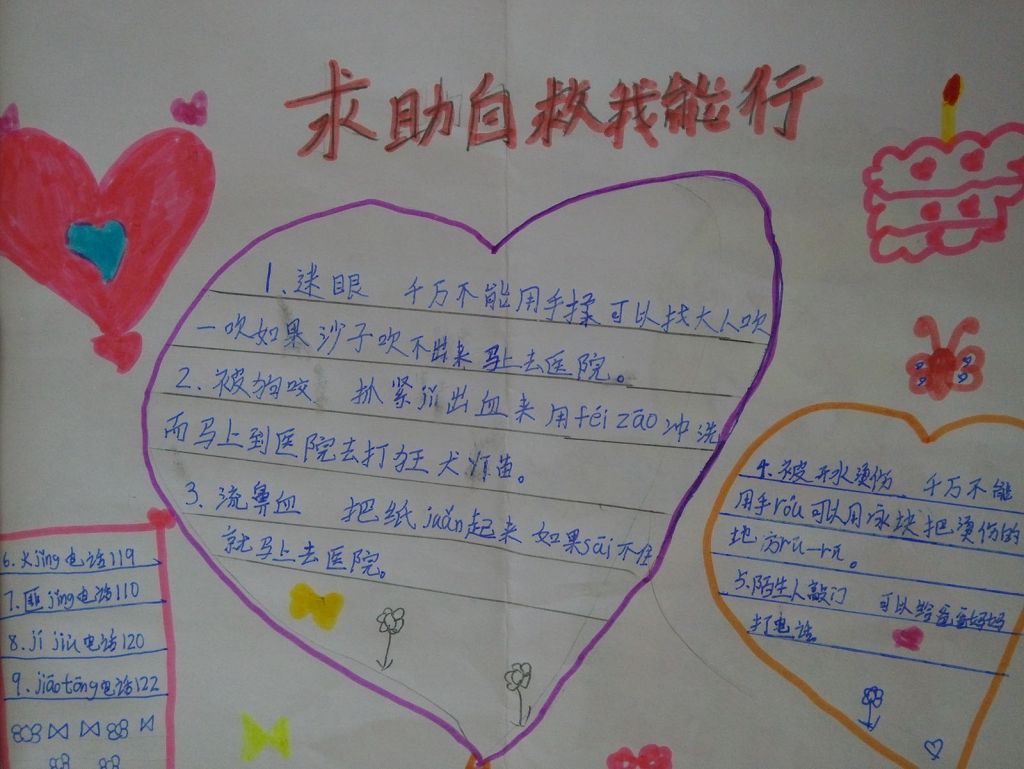 求助自救我能行
1、迷眼 千万不能用手揉可以找大人吹
一吹如果沙子吹不出来马上去医院。
2、被狗咬 抓紧jǐ出血来用féi zào冲洗
而马上到医院去打狂犬苗。
3、流鼻血 把纸juǎn起来如果sāi不住
就马上去医院。
4、被开水烫伤、千万不能
用手róu可以用冰块把烫伤的
地方
5、陌生人敲门 可以给爸爸妈妈
打电话
6、火jǐng电话119
7、匪jǐng电话110
8、jí jiù电话120
9、jiāotōng电话122